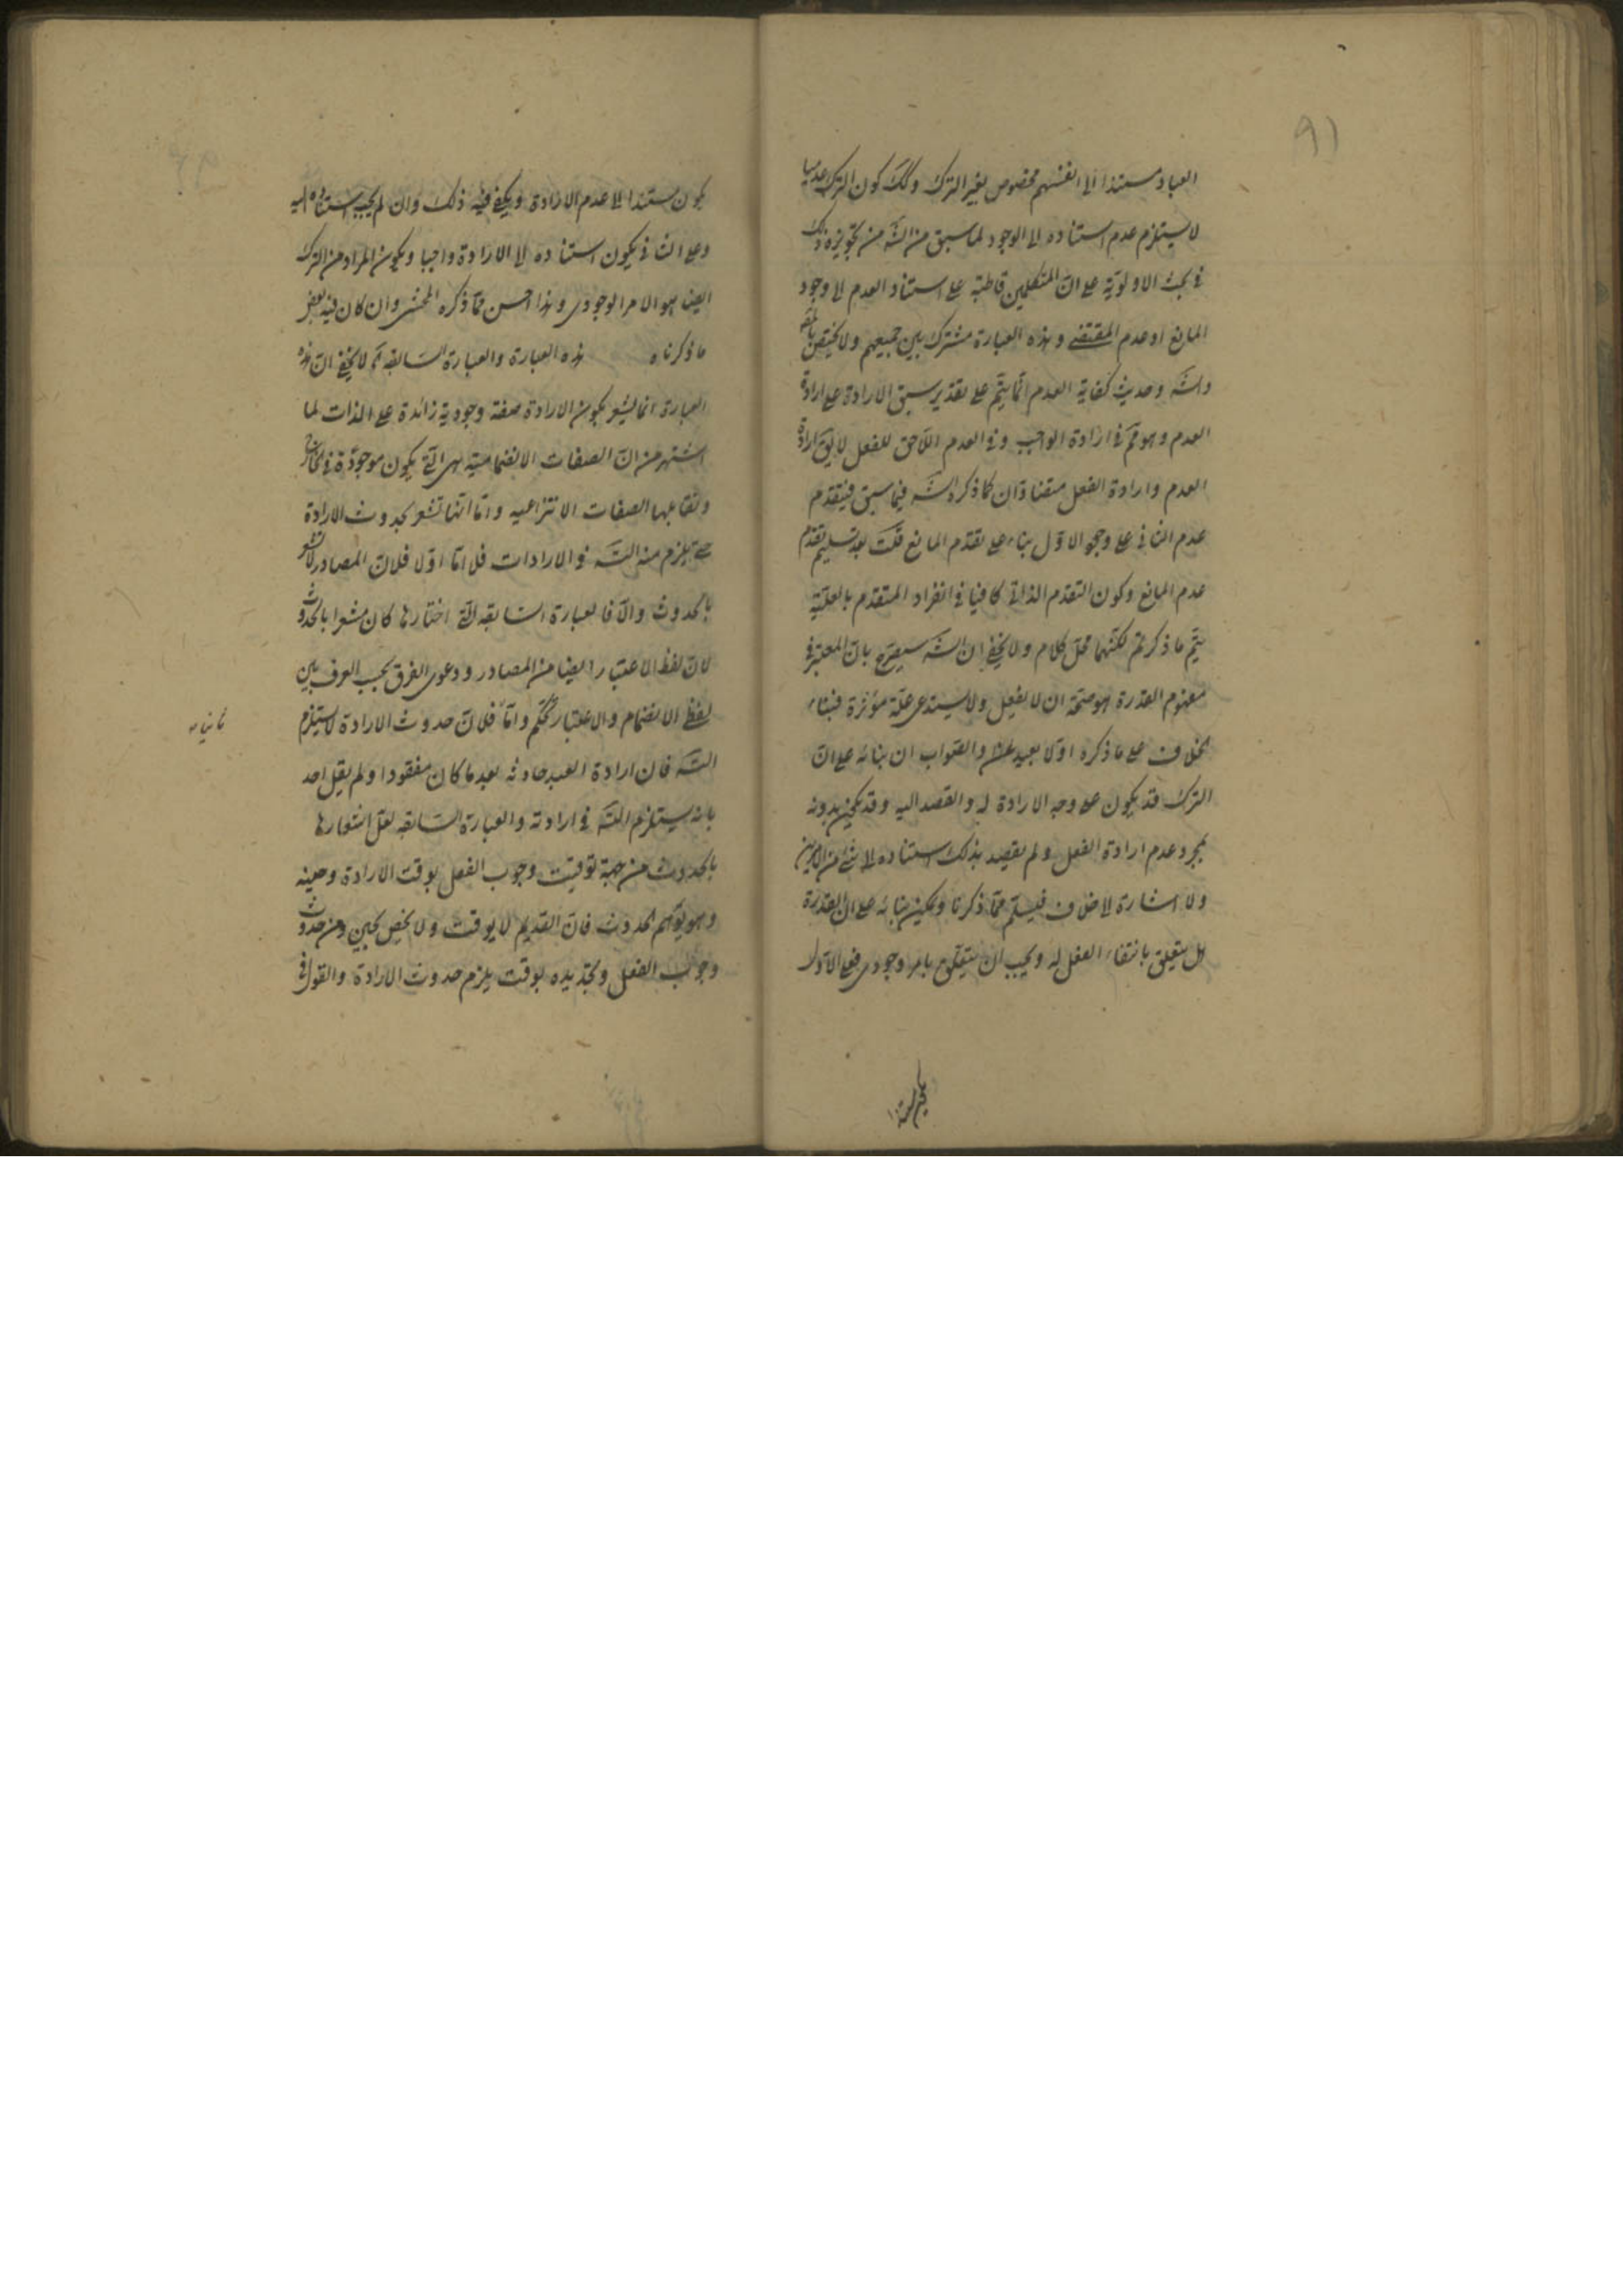 ٩١
العباد مستندا الى انفسهم مخصوص بغير الترك وكك كون الترك عدميا
لا يستلزم عدم استناده الى الوجود لما سبق من الشه من تجويزه ذلك
فى بحث الاولوية على ان المتكلمين قاطبة على استناد العدم الى وجود
المانع او عدم المقتضى وهذه العبارة مشترك بين جميعهم ولا يختص
والشه وحديث كفاية العدم انما يتم على تقدير سبق الارادة على ارادة
العدم وهو مم فى ارادة الواجب وفى العدم اللاحق للفعل لا يق ارادة
العدم وارادة الفعل متضادان كما ذكره الشه فيما سبق فيتقدم
عدم الثانى على وجود الاول بناء على تقدم المانع قلت بعد تسليم تقدم
عدم المانع وكون التقدم الذاتى كافيا فى انفراد المتقدم بالعلية
يتم ما ذكرتم لكنهما محل كلام ولا يخفى ان الشه سيصرح بان المعتبر فى
مفهوم القدرة هو صحة ان لا يفعل ولا يستدعى علة مؤثرة فبناء
الخلاف على ما ذكره اولا بعيد والصواب ان بنائه على ان
الترك قد يكون على وجه الارادة له والقصد اليه وقد يكون بدونه
بمجرد عدم ارادة الفعل ولم يقصد بذلك استناده الى شئ من الامرين
ولا اشارة الى خلاف فيسلم مما ذكرنا ويمكن بنائه على ان القدرة
هل يتعلق بانتفاء الفعل له ويجب ان يتعلق بامر وجودى فعلى الاول
يكون مستندا الى عدم الارادة ويكفى فيه ذلك وان لم يجب استناده اليه
وعلى الثانى يكون استناده الى الارادة واجبا ويكون المراد من الترك
ايضا هو الامر الوجودى وهذا احسن مما ذكره المحشى وان كان فيه بعض
ما ذكرناه هذه العبارة والعبارة السابقه لا يخفى ان هذه
العبارة انما يشعر بكون الارادة صفة وجودية زائدة على الذات لما
اشتهر من ان الصفات الانضمامية هى التى يكون موجودة فى الخارج
وتقابلها الصفات الانتزاعيه واما انها تشعر بحدوث الارادة
حتى يلزم منه التسه فى الارادات فلا اما اولا فلان المصادر لا تشعر
بالحدوث والا فالعبارة السابقه التى اختارها كان مشعرا بالحدوث
لان لفظ الاعتبار ايضا من المصادر ودعوى الفرق بحسب العرف بين
لفظ الانضمام والاعتبار تحكم واما فلان حدوث الارادة لا يستلزم
ثانيا
التسه فان ارادة العبد حادثه بعد ما كان مفقودا ولم يقل احد
بانه يستلزم التسه فى ارادته والعبارة السابقه لعل اشعارها
بالحدوث من جهة توقيت وجوب الفعل بوقت الارادة وحينه
وهو يوهم الحدوث فان القديم لا يوقت ولا يخص بحين ومن حدوث
وجوب الفعل وتجديده بوقت يلزم حدوث الارادة والقول فى